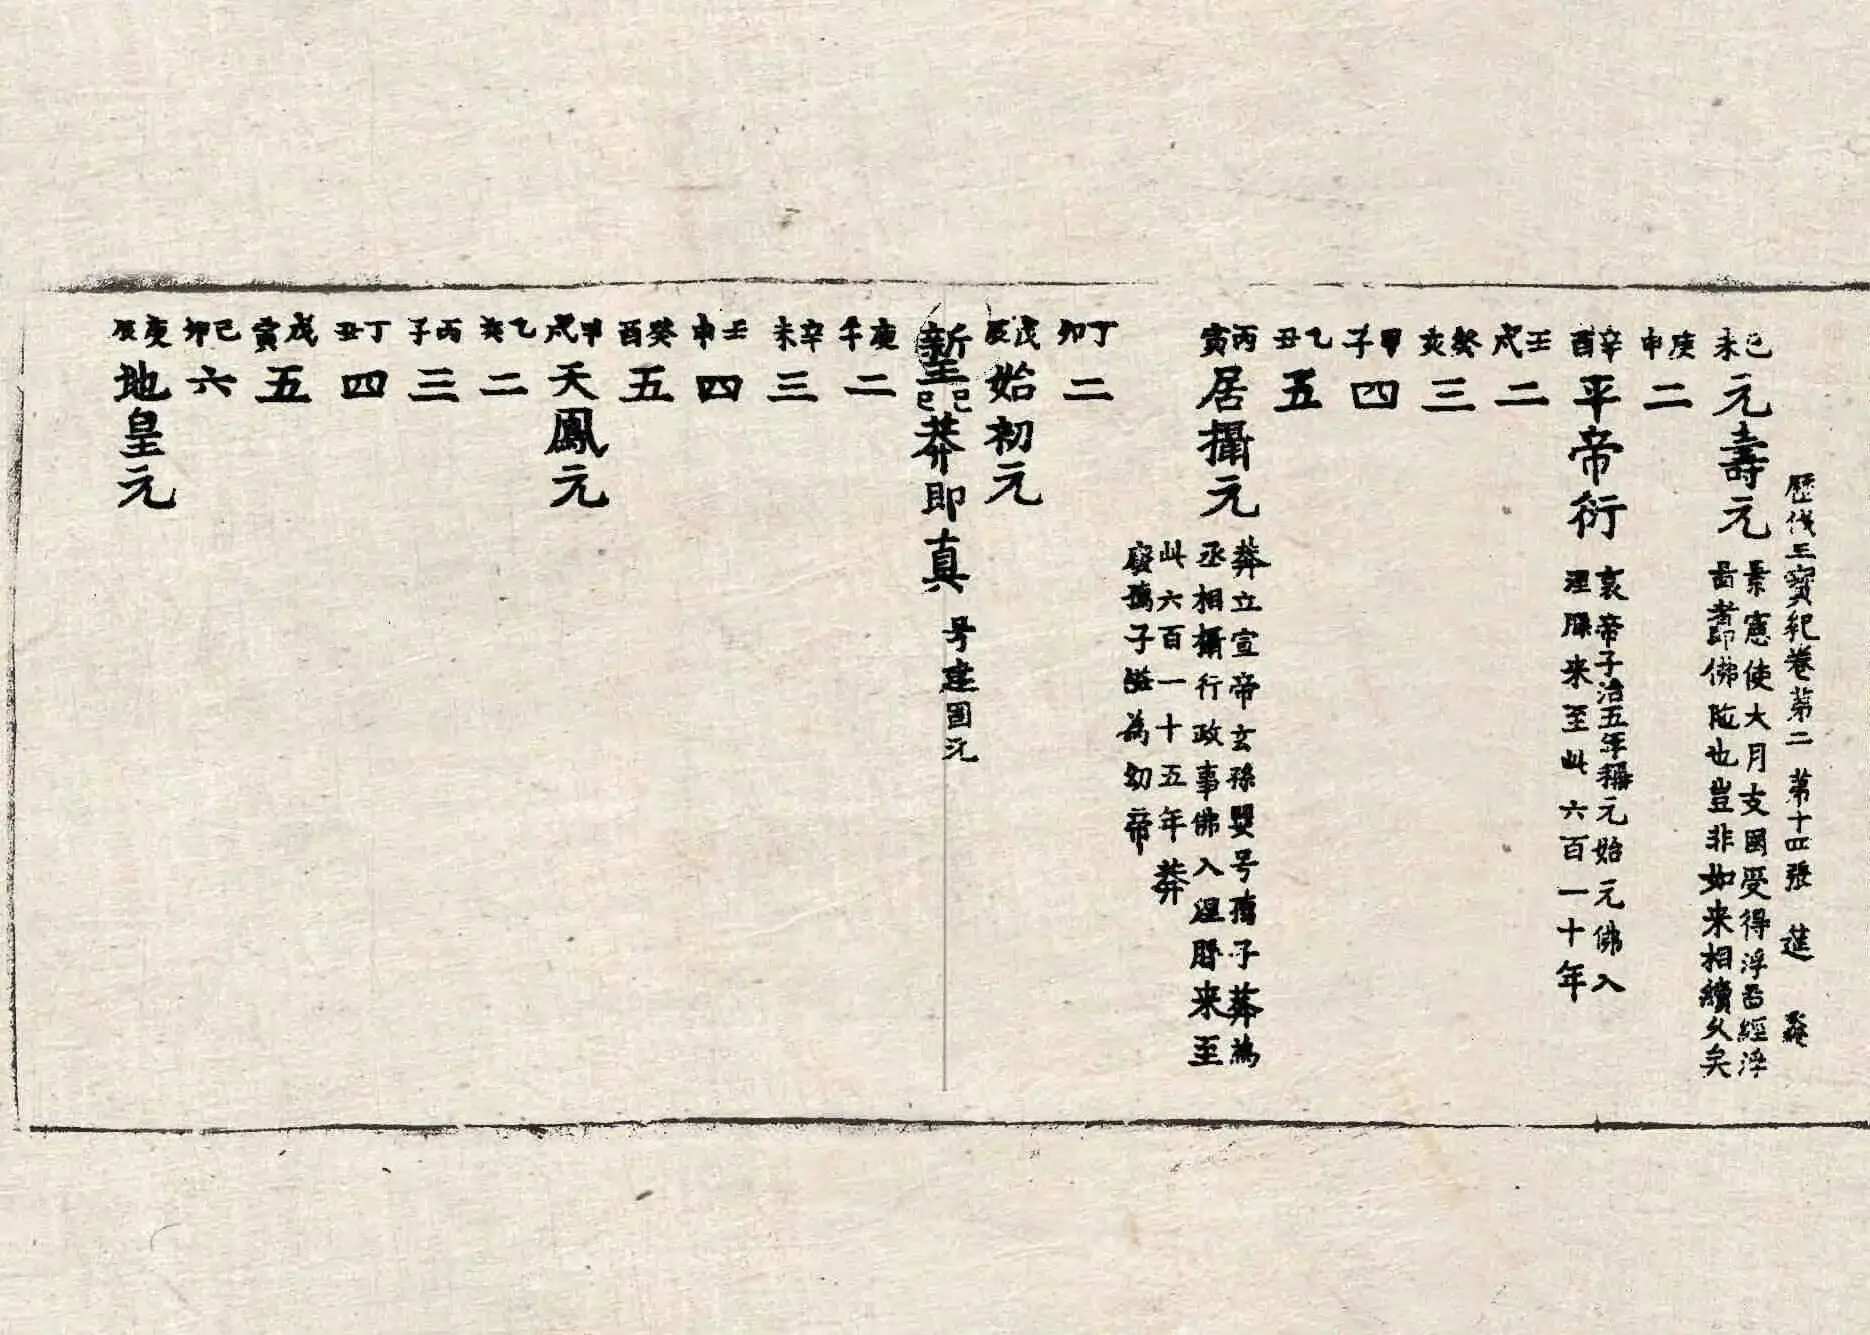 歷代三寶紀卷第二 第十四張 進
己未 元壽元 景憲使大月支國受得浮啚經浮
啚者即佛陁也豈非如来相續久矣
庚申 二
辛酉 平帝衍 哀帝子治五年稱元始元佛入
涅槃来至此六百一十年
壬戌 二
癸亥 三
甲子 四
乙丑 五
丙寅 居攝元 莽立宣帝玄孫嬰号孺子莽為
丞相攝行政事佛入涅槃来至
此六百一十五年莽
廢孺子為幼帝
丁卯 二
戊辰 始初元
新 己巳 莽即真 号建國元
庚午 二
辛未 三
壬申 四
癸酉 五
甲戌 天鳳元
乙亥 二
丙子 三
丁丑 四
戊寅 五
己卯 六
庚辰 地皇元